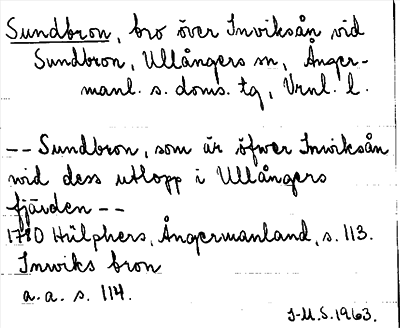 Sundbron, bro över Inviksån vid
Sundbron, Ullångers sn, Ånger-
manl. s. doms. tg, Vrnl. l.
-- Sundbron, som är öfwer Inwiksån
wid dess utlopp i Ullångers
fjärden --
1780 Hülphers, Ångermanland, s. 113.
Inwiks bron
a.a. s. 114.
I-M.S. 1963.